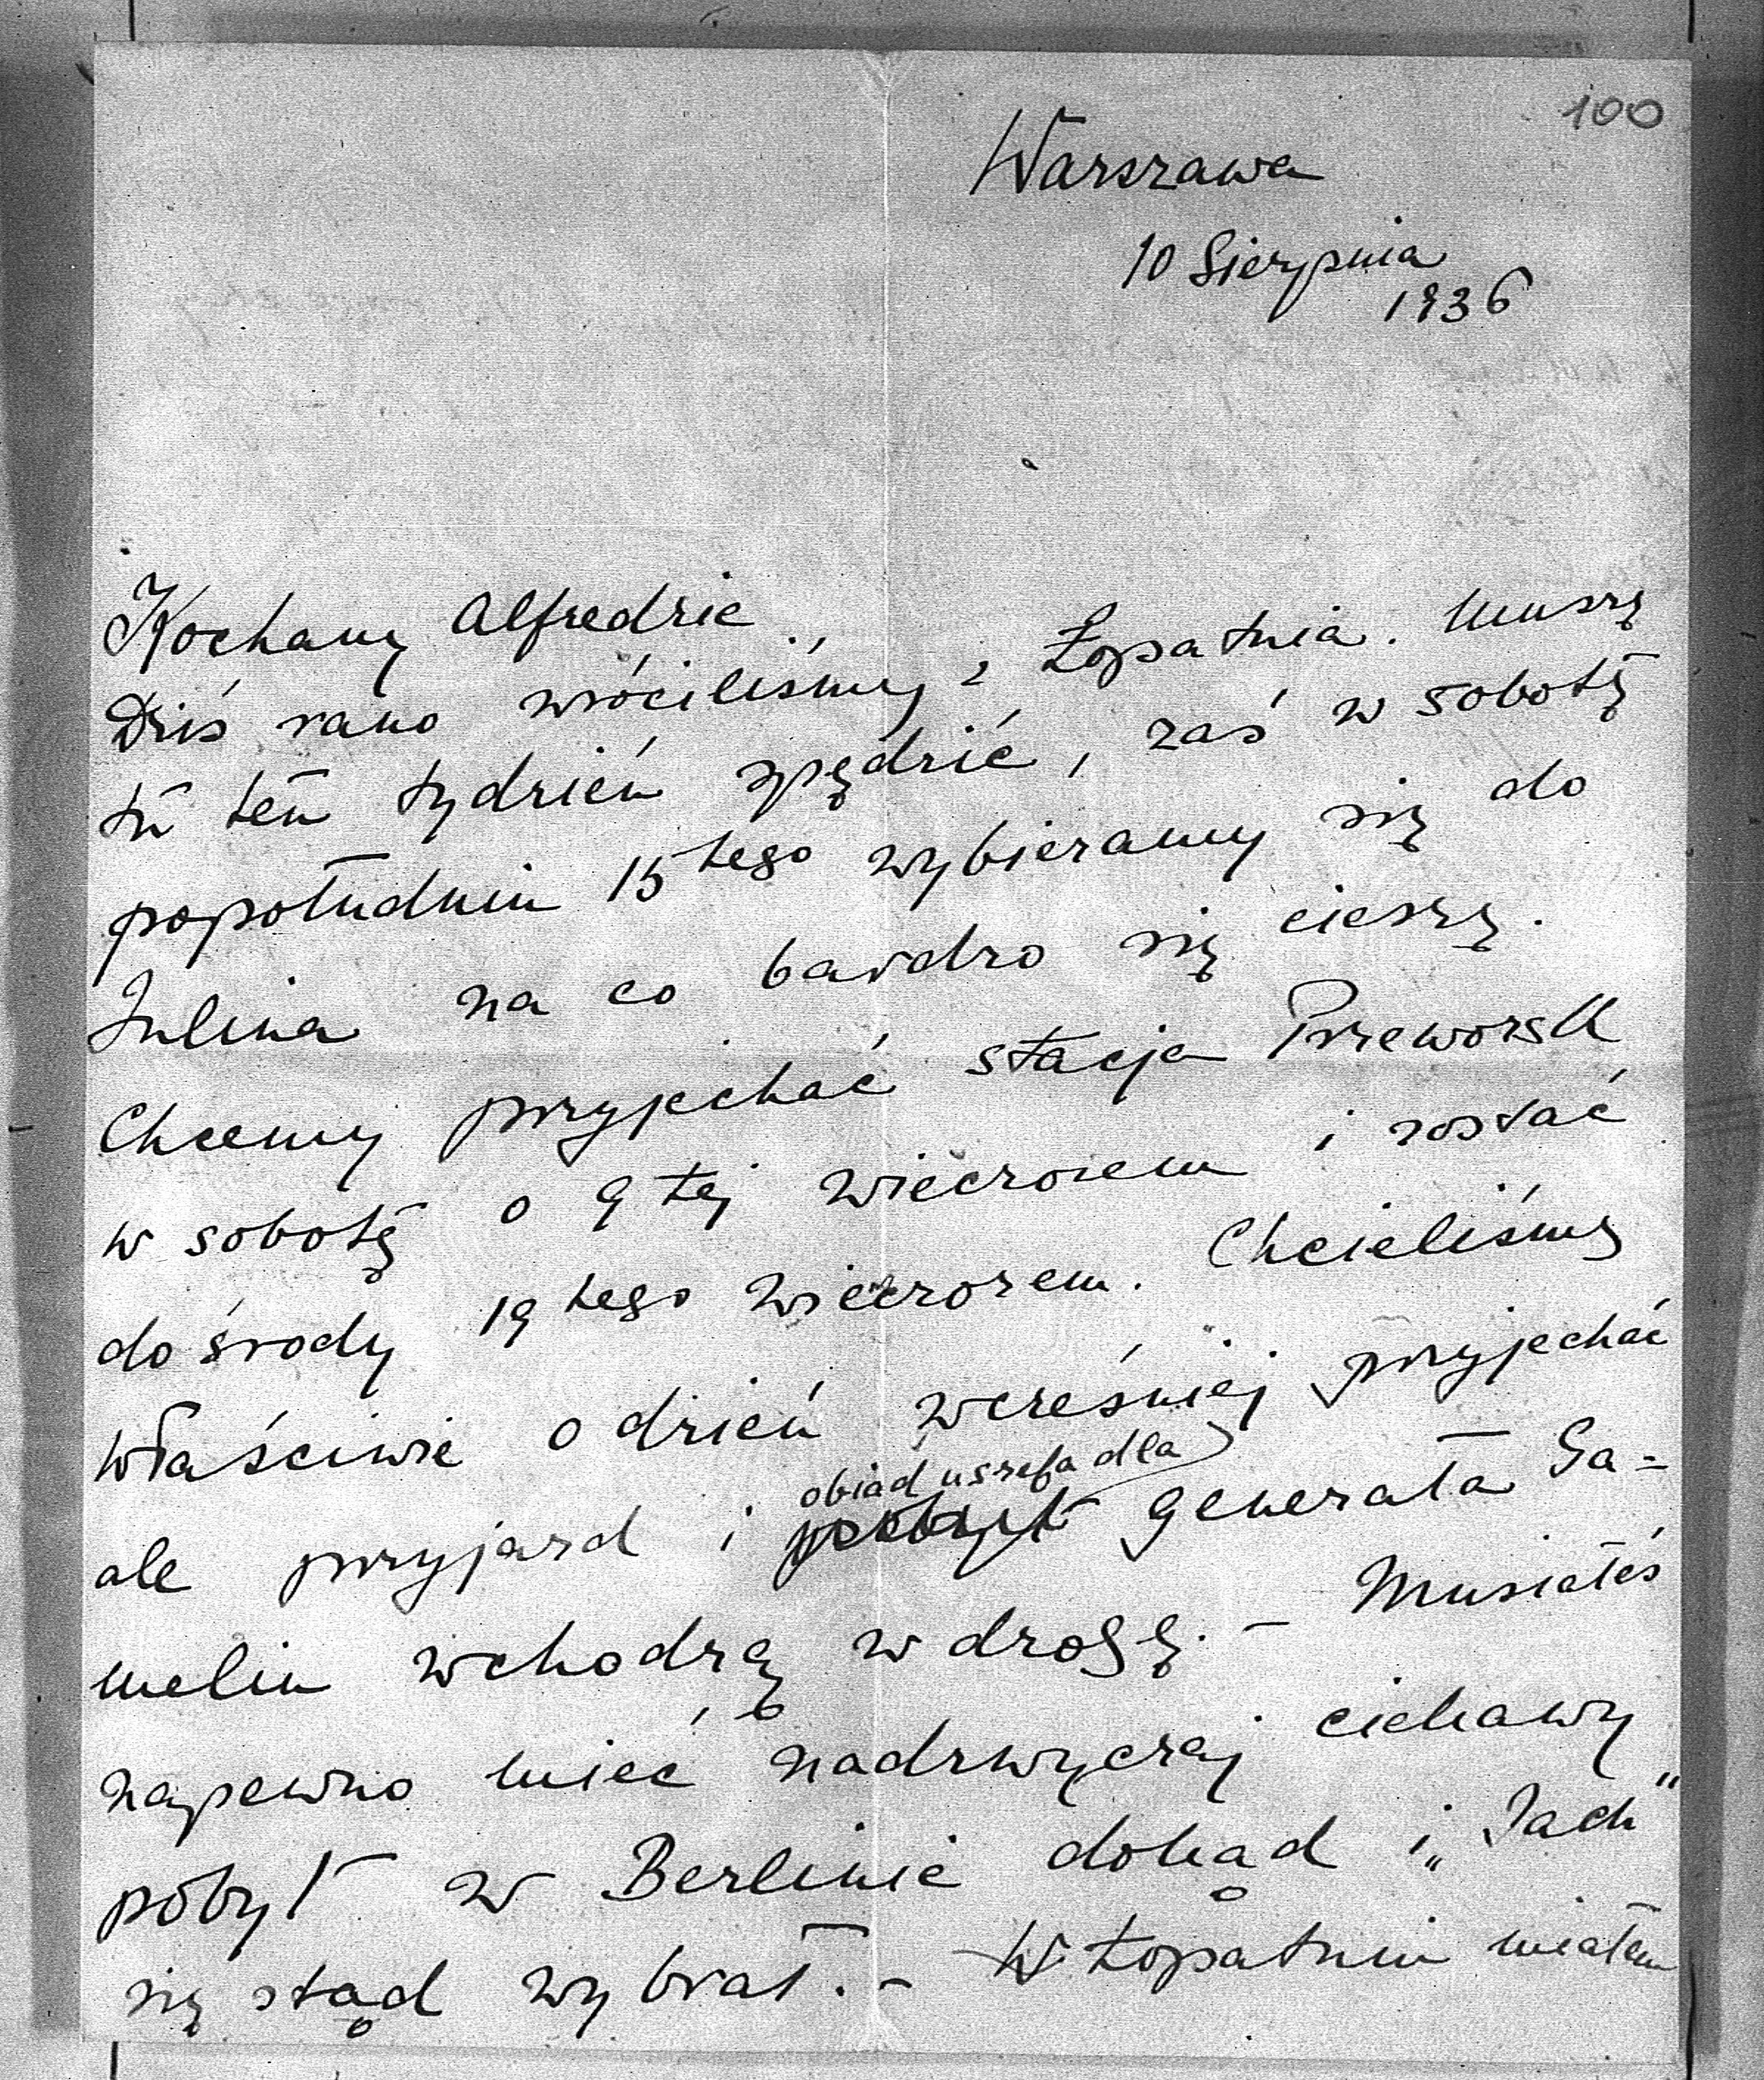 100
Warszawa
10 Sierpnia
1936
Kochany Alfredzie.,
Dziś rano wróciliśmy z Łopatnia. Muszę
tu ten tydzień spędzić, zaś w sobotę
popołudniu 15tego wybieramy się do
Julina na co bardzo się cieszę.
Chcemy przyjechać stacja Przeworsk
w sobotę o 9tej wieczorem i zostać
do środy 19tego wieczorem. Chcieliśmy
właściwie o dzień wcześniej przyjechać
obiad u szefa dla
ale przyjazd i pobyt generała Ga=
melin wchodzą w drogę. - Musiałeś
napewno mieć nadzwyczaj ciekawy
pobyt w Berlinie dokąd i „Jach"
się stąd wybrał. - W Łopatniu miałem